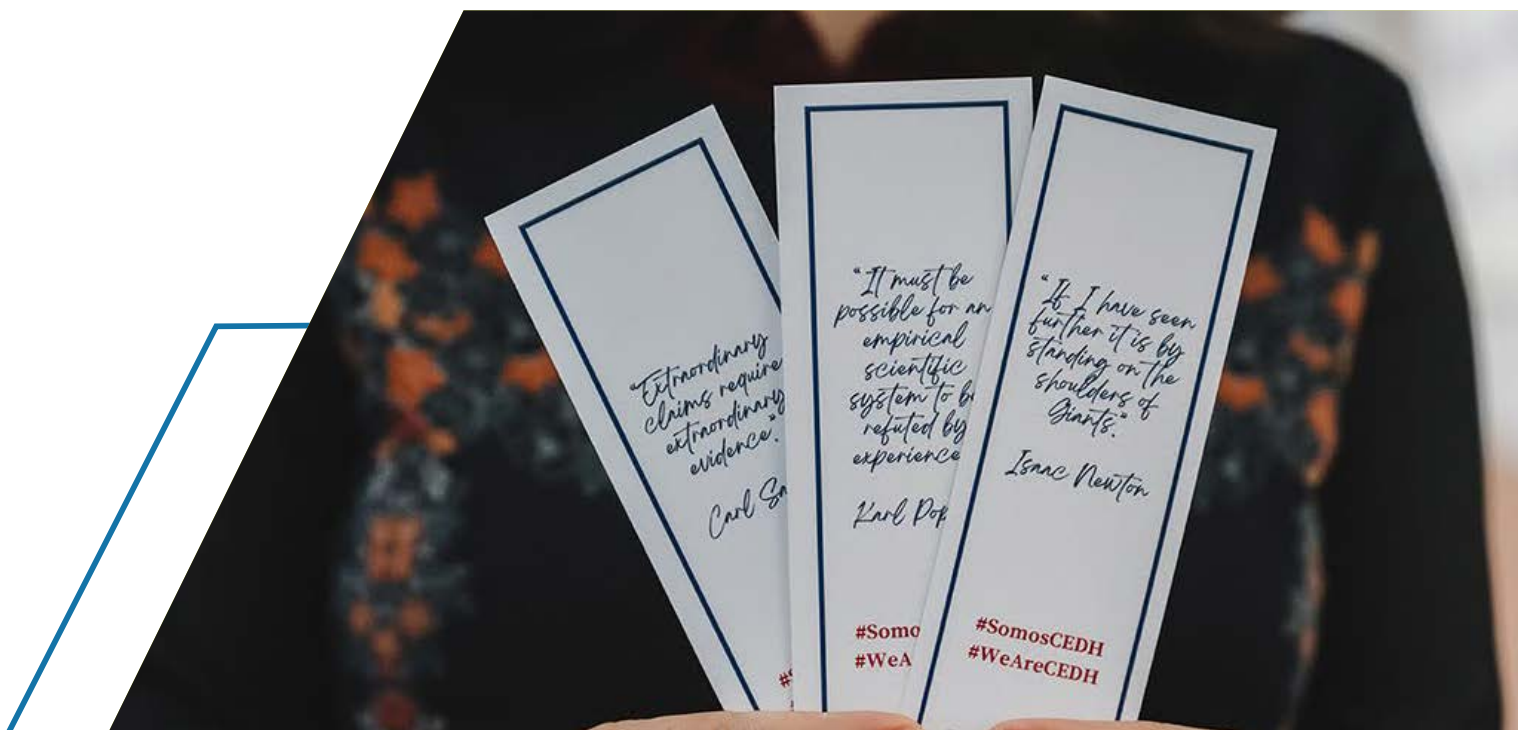 "Extraordinary
claims require
extraordinary
evidence".
Carl
"It must be
possible for an
empirical
scientific
system to
refuted by
experience
Karl
#WeA
"If I have seen
further it is by
standing on the
shoulders of
Giants."
Isaac Newton
#SomosCEDH
#WeAreCEDH